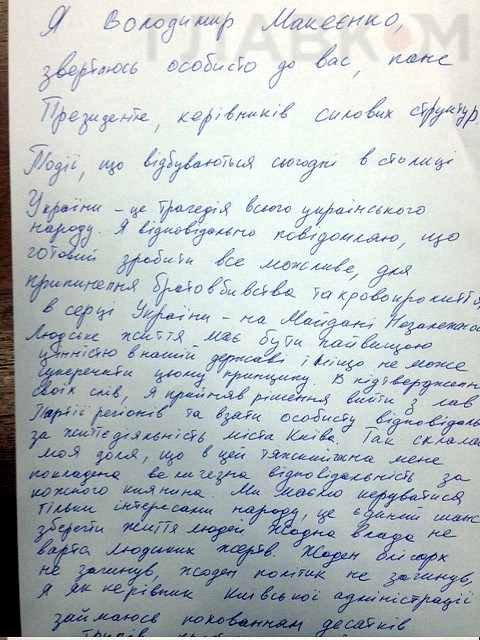 ГЛАВКОМ
Я Володимир Макеєнко,
звертаюсь особисто до вас, пане
Президенте, керівників силових структур.
Події, що відбуваються сьогодні в столиці
України – це трагедія всього українського
народу. Я відповідально повідомляю, що
готовий зробити все можливе, для
припинення братовбивства та кровопролиття
в серці України – на Майдані Незалежнос
Людське життя має бути найвищою
цінністю в нашій державі і ніщо не може
суперечити цьому принципу. В підтвердженн
своїх слів, я прийняв рішення вийти з лав
Партії регіонів та взяти особисту відповідаль
за життєдіяльність міста Києва. Так склалас
моя доля, що в цей тяжкий на мене
покладена величезна відповідальність за
кожного киянина. Ми маємо керуватися
тільки інтересами народу, це єдиний шанс
зберегти життя людей Жодна влада не
варта людських жертв. Жоден олігарх
не загинув, жоден політик не загинув,
Я як керівник Київської адміністрації
займаюсь похованням десятків
трупів